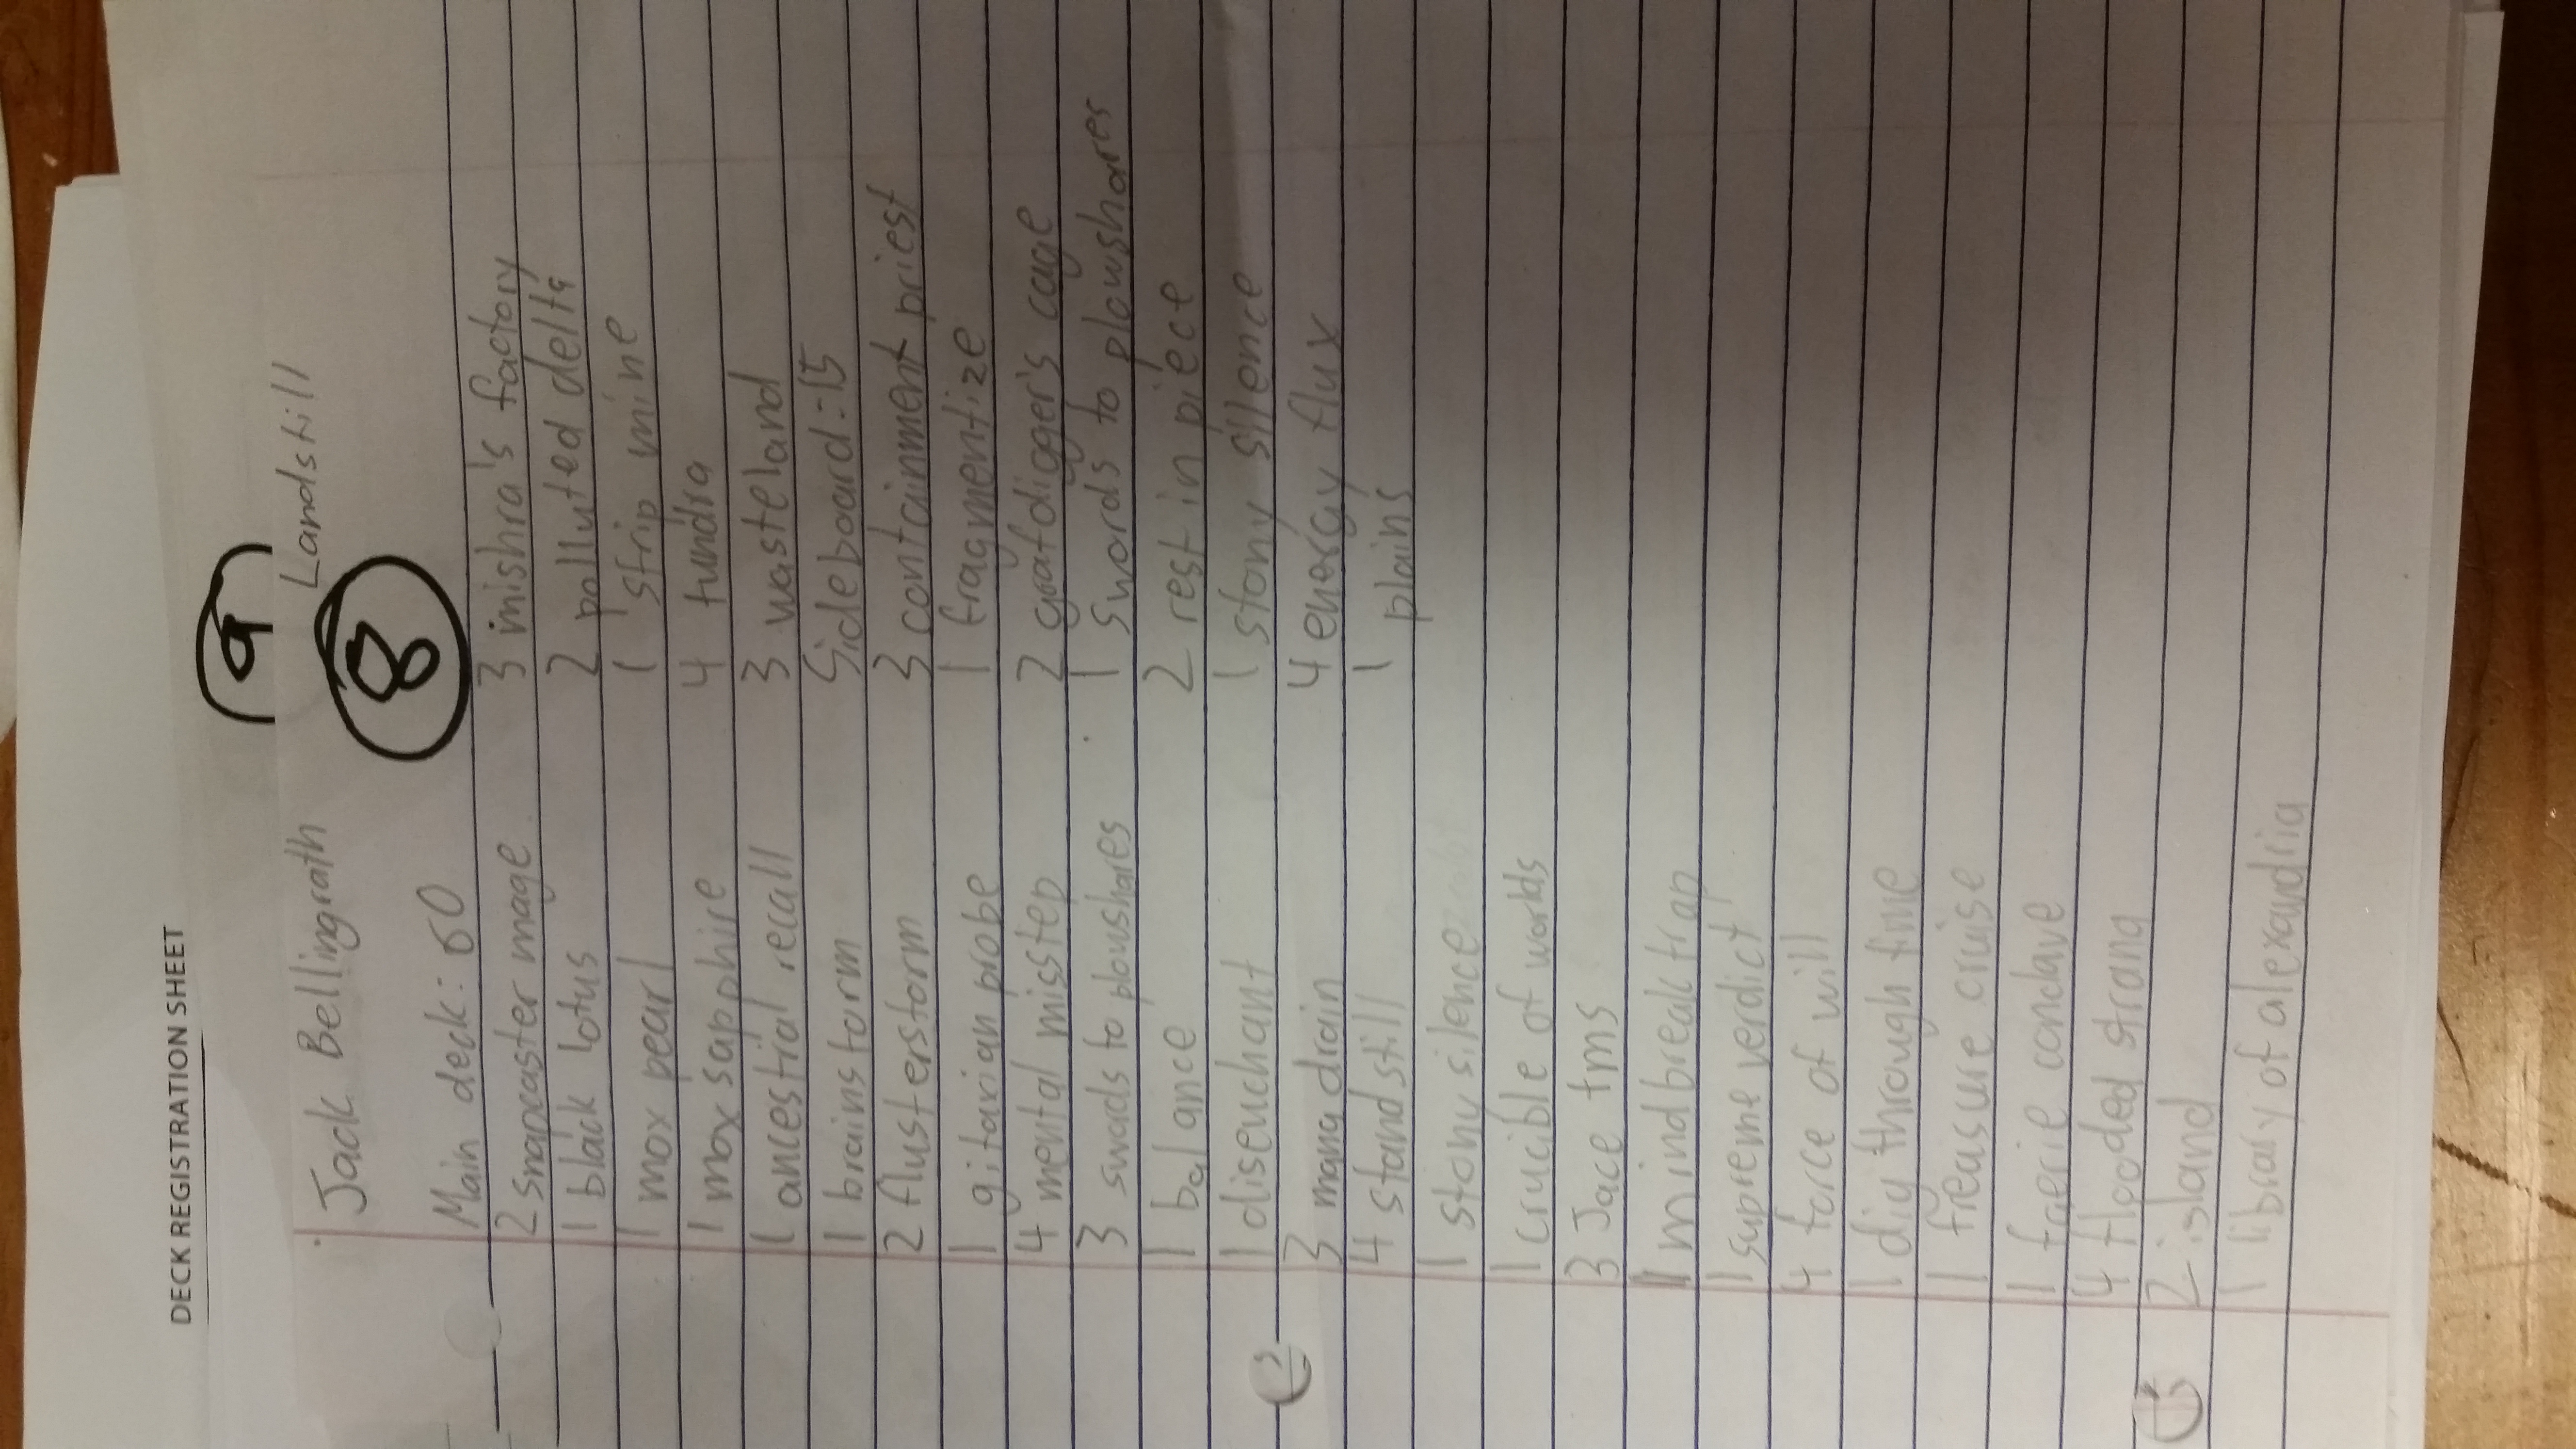 DECK REGISTRATION SHEET
9
Jack Bellingrath
Landstill
8
Main deck: 60
2 snapcaster mage
1 black lotus
1 mox pearl
1 mox sapphire
1 ancestial recall
1 brainstorm
2 flusterstorm
1 gitaxian probe
4 mental misstep
3 swords to plowshares
1 balance
1 disenchant
3 mana drain
4 standstill
1 stony silence
1 crucible of worlds
3 Jace tms
1 mindbreak trap
1 supreme verdict
4 force of will
1 dig through time
1 treasure cruise
1 faerie conclave
4 flooded strand
2 island
1 library of alexandria
3 mishra's factory
2 polluted delta
1 strip mine
4 tundra
3 wasteland
Sideboard: 15
3 containment priest
1 fragmentize
2 grafdigger's cage
1 swords to plowshares
2 rest in piece
1 stony silence
4 energy flux
1 plains